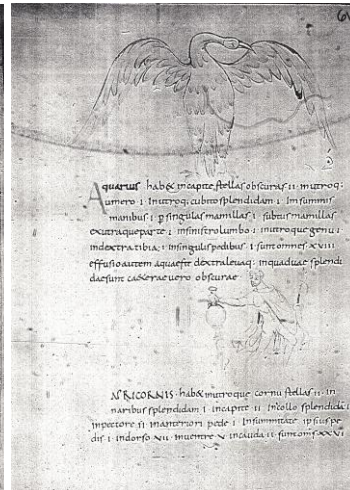 Aquarius habet incapite stellas obscuras ii inutroq:
umero i Inutroq; cubito splendidam i Insummis
manibus i p singulas mamillas i subtus mamillas
exutraqueparte i insinistrolumbo i inutroque genu i
indextra tibia i insingulis pedibus i sunt omnes xviii
effusio autem aquae est dextra leuaq: inquaduae splendi
dae sunt caeterae uero obscurae
RICORNIS habet inutroque cornu stellas ii in
naribus splendidam i incapite ii In collo splendida i
inpectore ii inanteriori pede i Insummitate ipsius pe
dis i indorso vii inuentre v incauda ii sunt oms xxvi